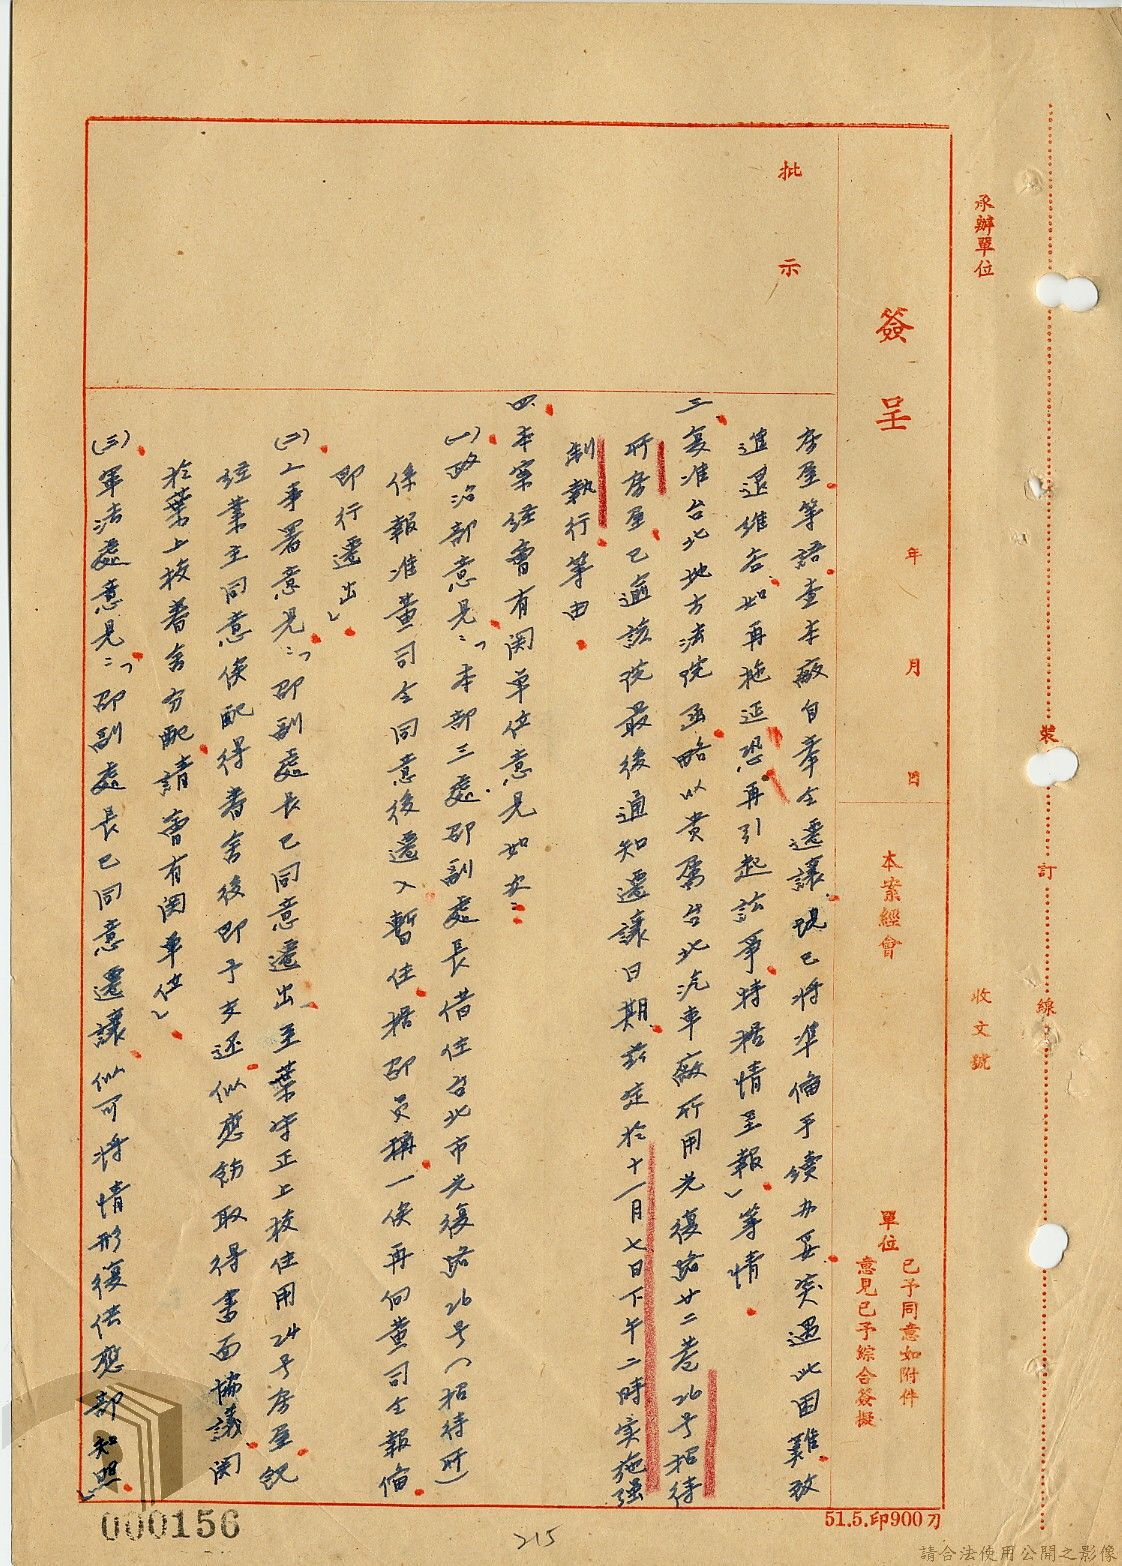 承辦單位
收文號
裝
訂
線
簽呈
年月日
本案經會
單位
已予同意如附件
意見已予綜合簽擬
批示
房屋等語查本廠自奉令遷讓現已將準備手續办妥突遇此困難致
進退維谷如再拖延恐再引起訟爭特格情呈報」等情
三、復准台北地方法院函略以貴屬台北汽車廠所用光復路廿二巷26号招待
所房屋已逾該院最後通知遷讓日期茲定於十一月七日下午二時实施强
制執行等由
四、本案经會有関单位意見如左：
㈠政治部意見：「本部三處邵副處長借住台北市光復路26号(招待所)
係報准黄司令同意後遷入暫住据邵員稱一俟再向黄司令報備
即行遷出」
㈡上事署意見：「邵副處長已同意遷出至葉守正上校住用24号房屋既
经業主同意俟配得眷舍後即予交还似應飭取得書面協議関
於葉上校眷舍分配請會有関单位」
㈢軍法處意見：「邵副處長已同意遷讓似可將情形復供應部知照」
51.5.印900刀
000156
215
請合法使用公開之影像